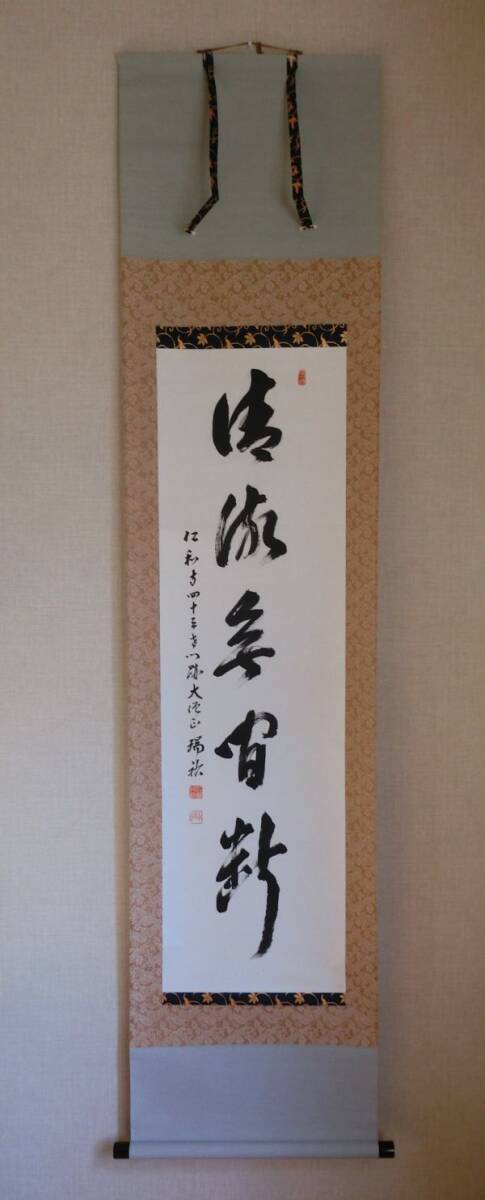 清流無間断
仁和寺四十三世門跡大僧正瑞教